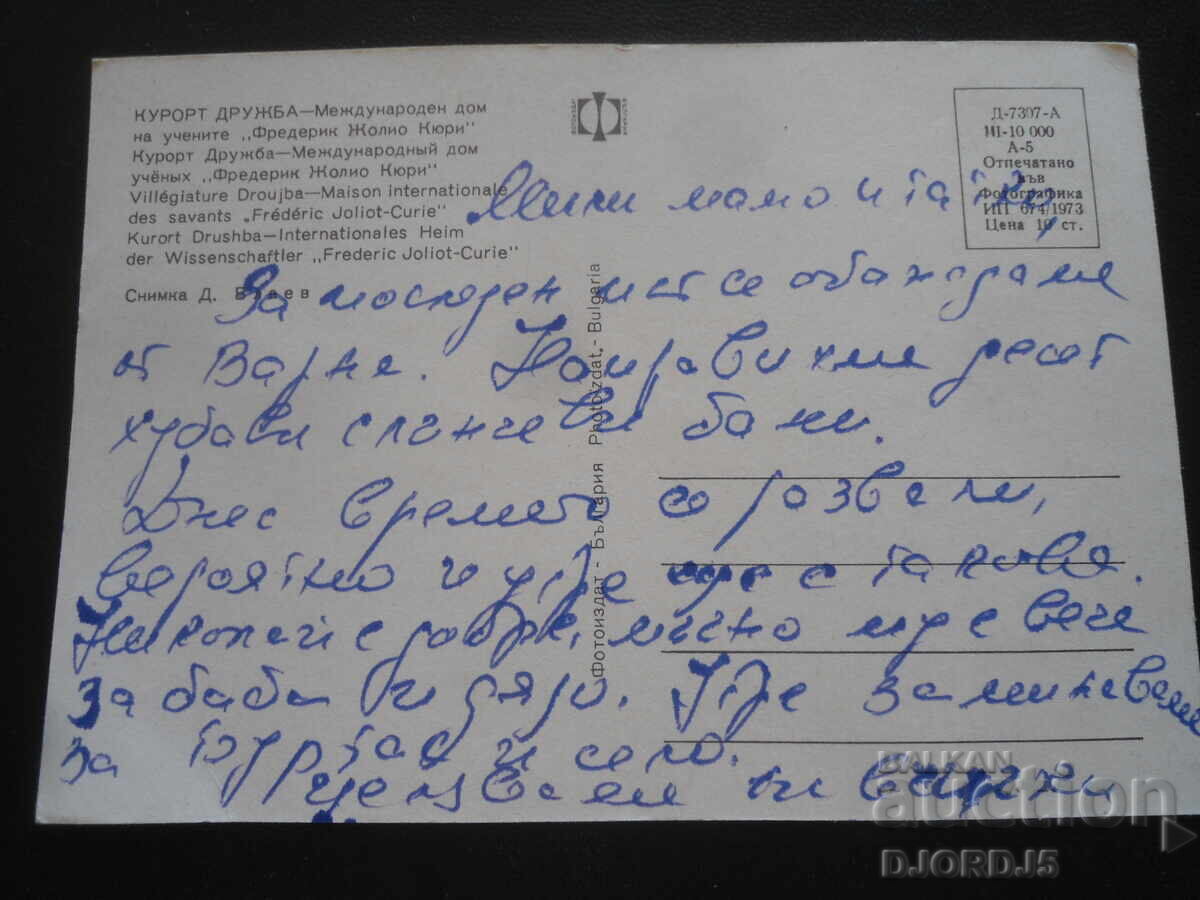 КУРОРТ ДРУЖБА—Международен дом
на учените „Фредерик Жолио Кюри"
Курорт Дружба—Международный дом
учёных „Фредерик Жолио Кюри"
Villégiature Droujba—Maison internationale
des savants „Frédéric Joliot-Curie"
Kurort Drushba—Internationales Heim
der Wissenschaftler „Frederic Joliot-Curie"
Снимка Д. Владев
Д-7307-А
III-10 000
А-5
Отпечатано
във
Фотографика
ИП 674/1973
Цена 10 ст.
Фотоиздат - България Photoizdat - Bulgaria
Мили мамо и татко,
За последен път се обаждаме
от Варна. Направихме десет
хубави слънчеви бани.
Днес времето се развали,
вероятно и утре ще е такова.
Николай е добре, мъчно му е вече
за баба и дядо. Утре заминаваме
за и село.
Целуваме ви всички
BALKAN
auction
DJORDJ5